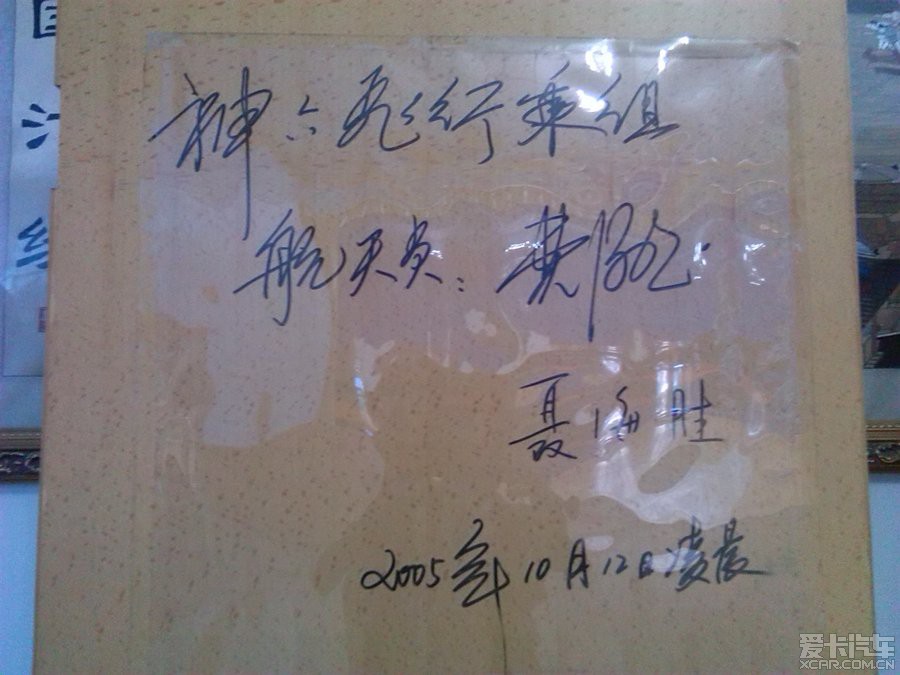 神六飞行乘组
航天员：费俊龙
聂海胜
2005年10月12日凌晨
爱卡汽车
XCAR.COM.CN